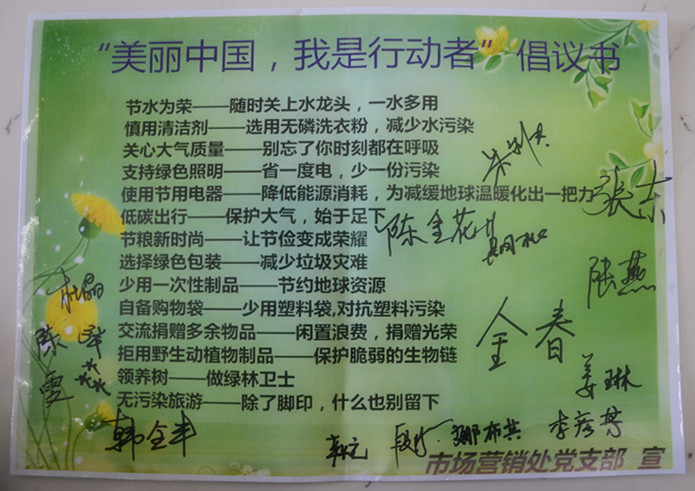 “美丽中国，我是行动者”倡议书
节水为荣——随时关上水龙头，一水多用
慎用清洁剂——选用无磷洗衣粉，减少水污染
关心大气质量——别忘了你时刻都在呼吸
支持绿色照明——省一度电，少一份污染
使用节用电器——降低能源消耗，为减缓地球温暖化出一把力
张东
低碳出行——保护大气，始于足下
陈金花
节粮新时尚——让节俭变成荣耀
选择绿色包装——减少垃圾灾难
陆燕
少用一次性制品——节约地球资源
杜晶
自备购物袋——少用塑料袋,对抗塑料污染
金春
交流捐赠多余物品——闲置浪费，捐赠光荣
拒用野生动植物制品——保护脆弱的生物链
姜琳
领养树——做绿林卫士
无污染旅游——除了脚印，什么也别留下
韩全丰
市场营销处党支部 宣